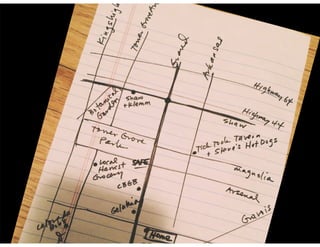 Kingshigh
Tower Grove
Grand
Arkansas
Highway 64
Highway 44
Botanical
Garden
Shaw
+ Klemm
Shaw
Tower Grove
Park
Tick Tock Tavern
+ Steve's Hot Dogs
Local
Harvest
Grocery
SAFE
Magnolia
CBGB
Arsenal
Gelateria
Gravois
Home